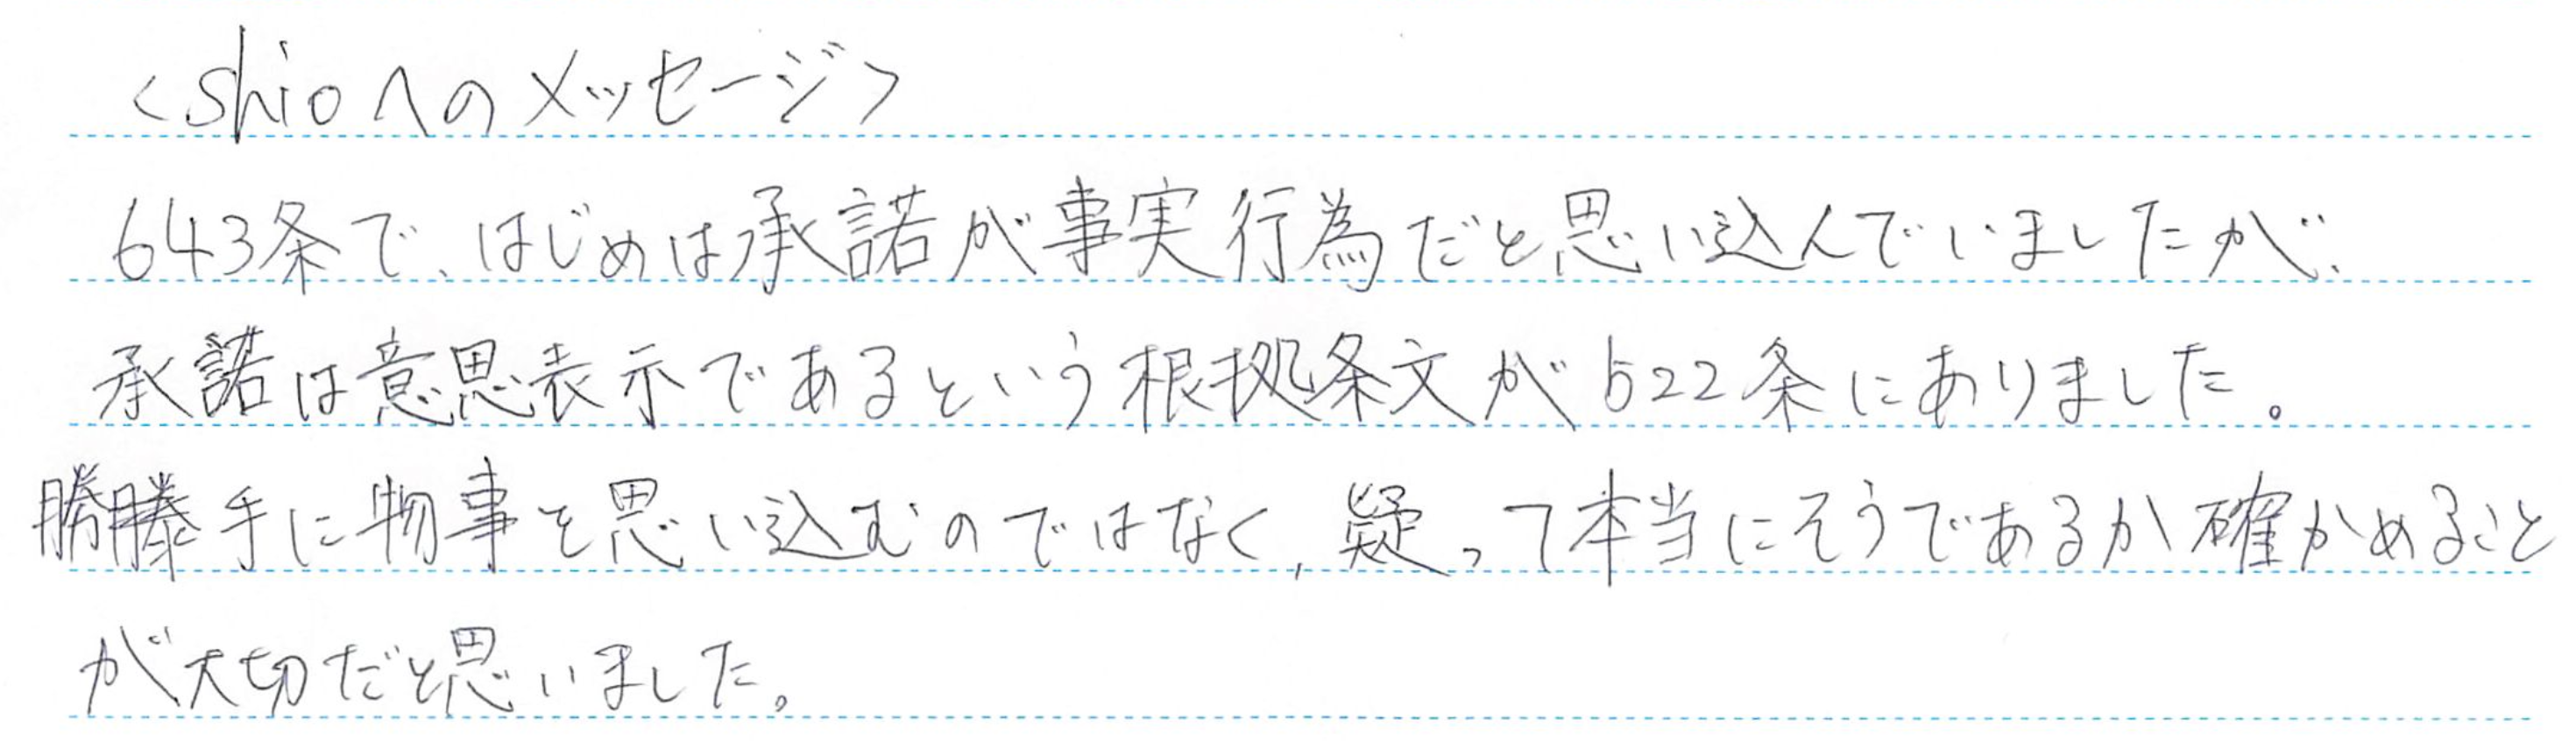 <shioへのメッセージ>
643条で、はじめは承諾が事実行為だと思い込んでいましたが、
承諾は意思表示であるという根拠条文が522条にありました。
勝手に物事を思い込むのではなく,疑って本当にそうであるか確かめること
が大切だと思いました。